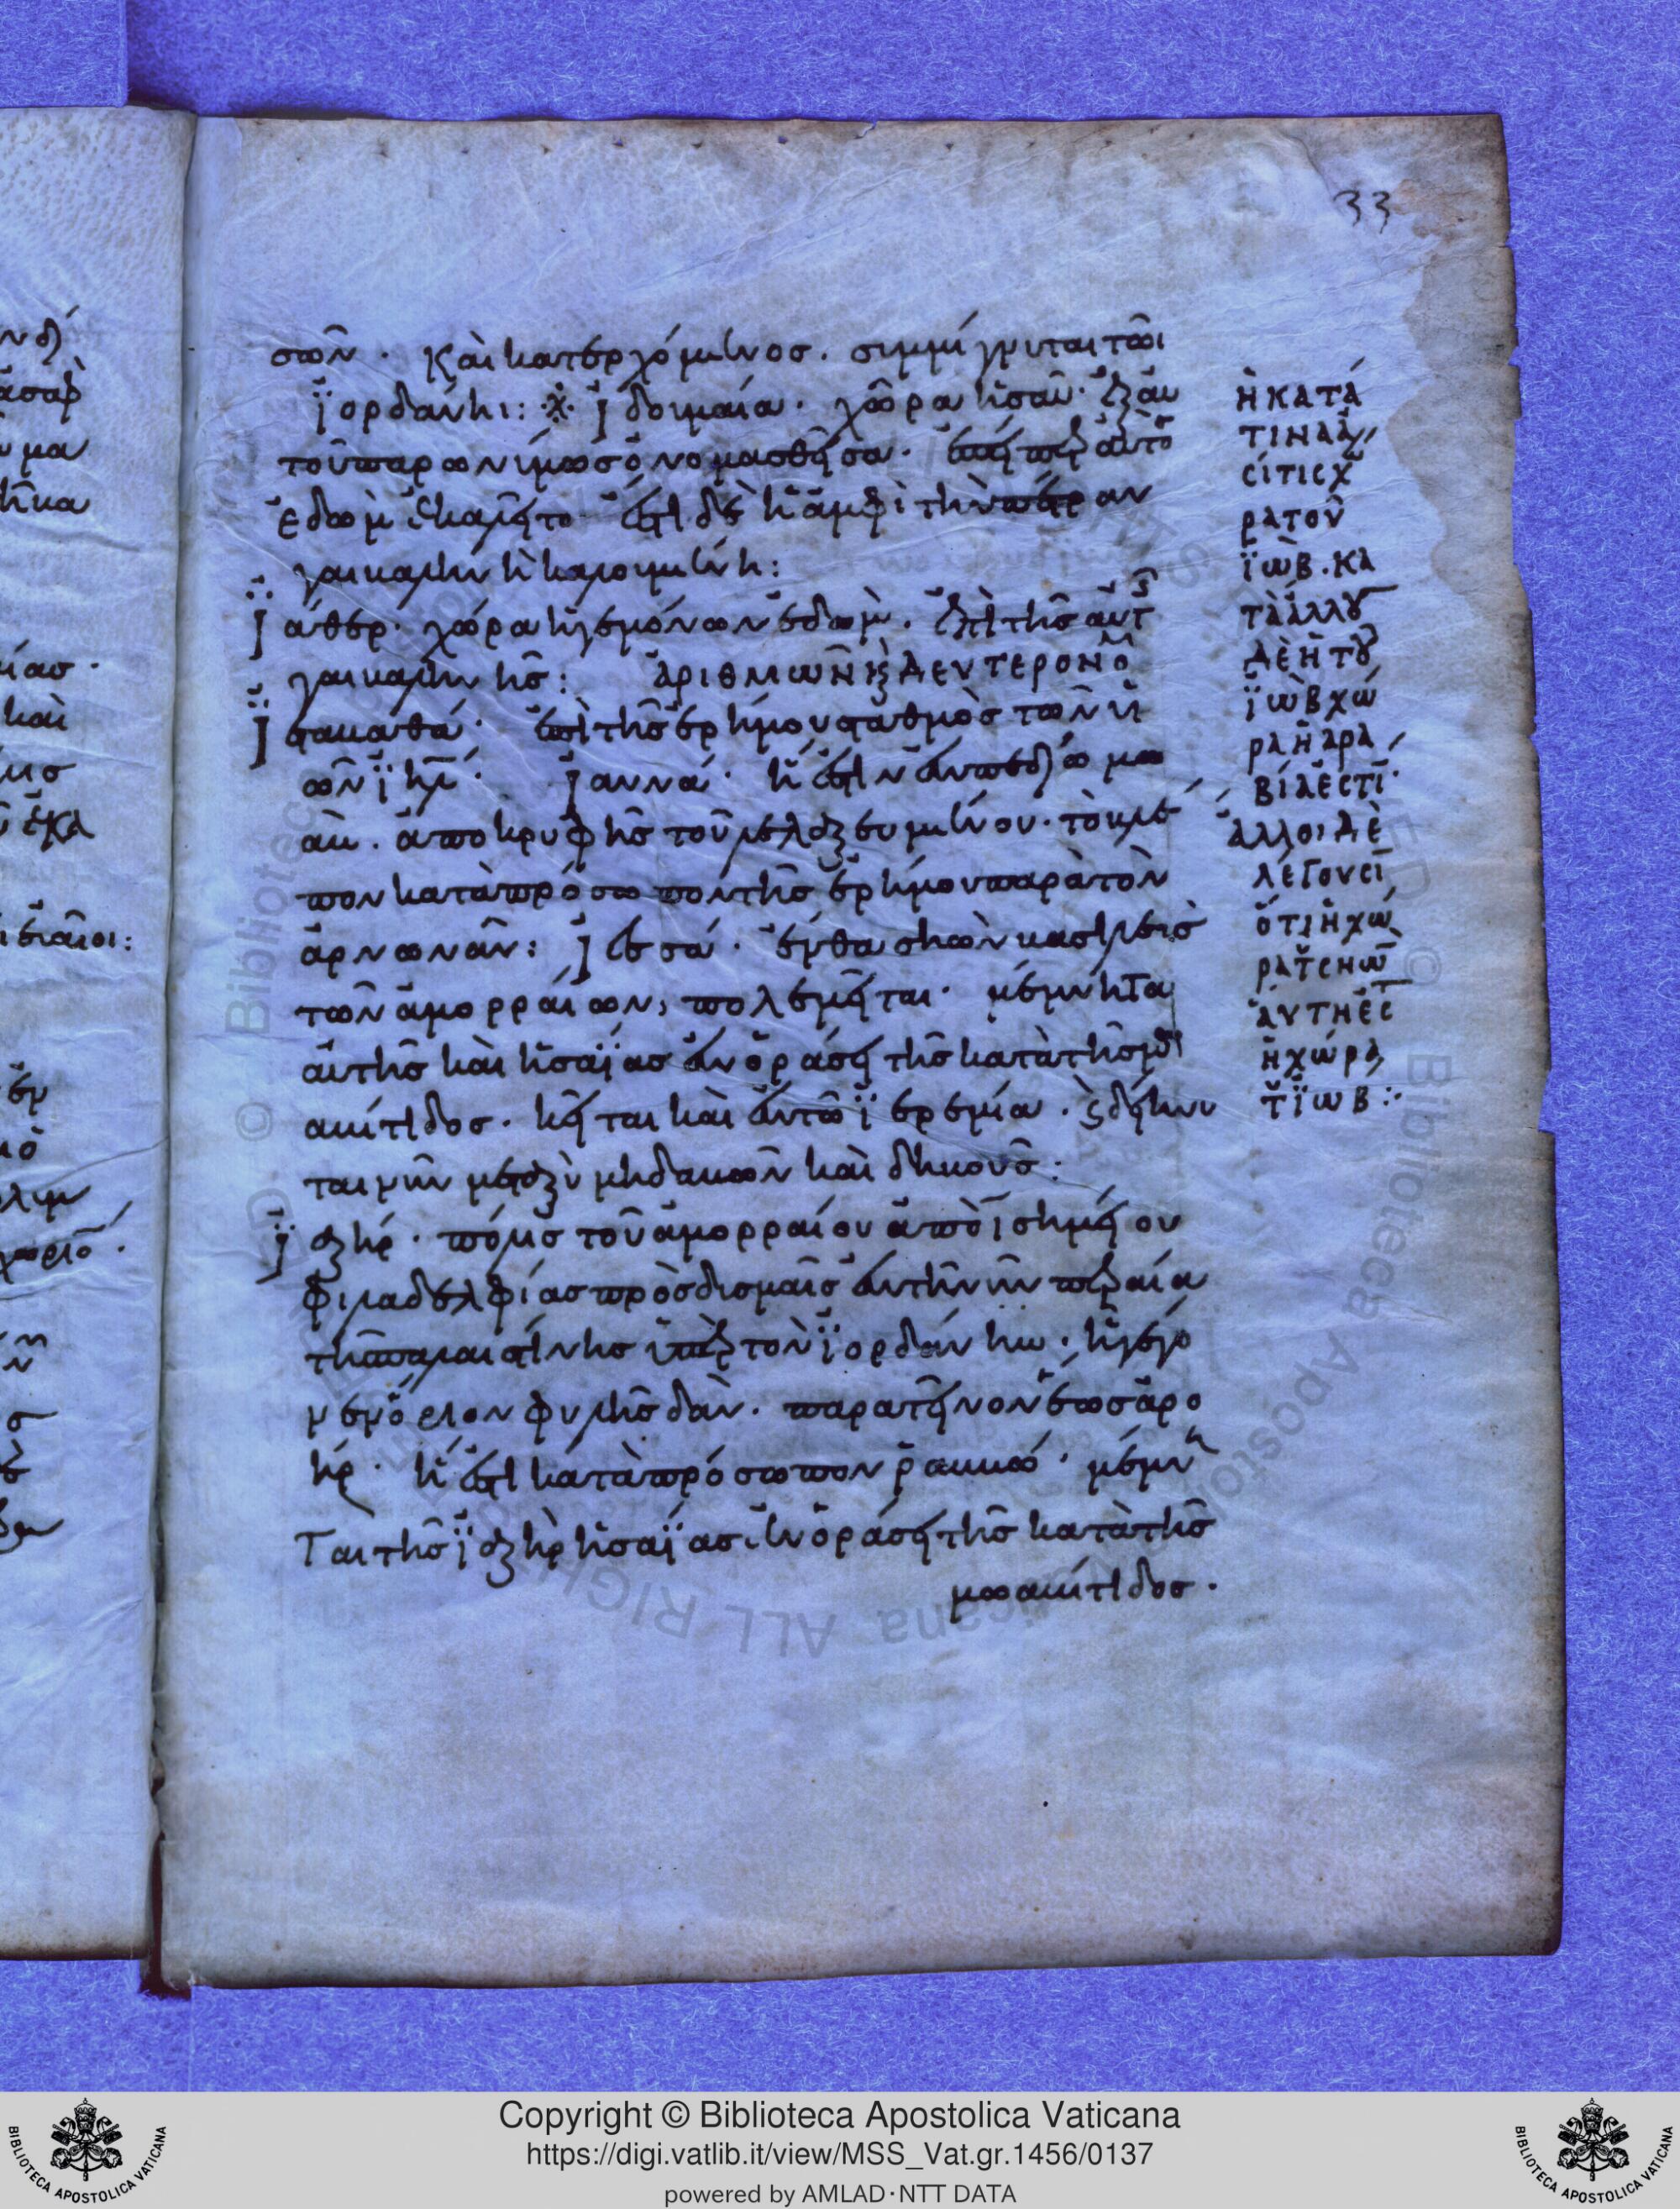 33
στῶν· καὶ κατερχόμενος. συμμίγνυται τῶι
ϊορδάνηι: ※ ϊδουμαία. χώρα ἠσαῦ. ἐξ αυ
τοῦ παρωνύμως ὀνομασθεῖσα. ἐπείπερ αὐτὸ
ἐδὼμ ἐκαλεῖτο. ἐστὶ δὲ ἡ ἀμφὶ τὴν πέτραν
γαικαλὴνὴ καλουμένη:
ϊάθερ· χώρα ἡγεμόνων ἐδώμ. ἐπὶ τῆς αὐτ
γαικαληνῆς: ἀριθμῶν κ δευτερονο
ϊτακαθά. ἐπὶ τῆς ἐρήμου σταθμὸς τῶν υἱ
ῶν ϊηλ. ϊαννά. ἡ ἐστὶν ἐν πεδίω μω
αβ. ἀπὸ κρυφῆς τοῦ λελαξευμένου. τὸ βλέ
πον κατὰ πρόσωπον τῆς ἐρήμου παρὰ τὸν
ἀρνωνᾶν: ϊεσσά. ἔνθα σηὼν βασιλεὺς
τῶν ἀμορραίων, πολεμεῖται. μέμνηται
αὐτῆς καὶ ἠσαΐας ἐν ὁράσει τῆς κατὰ τῆς μω
αβίτιδος. κεῖται καὶ ἐν τῶ ϊερεμία. δείκνυ
ται νῦν μεταξὺ μηδαβῶν καὶ δηβοῦς:
ϊαζήρ. πόλις τοῦ ἀμορραίου ἀπὸ ι σημείου
φιλαδελφίας πρὸς δυσμαῖς ἐν τῆ νῦν περαία
τῆς παλαιστίνης ὑπὲρ τὸν ϊορδάνην. ἡ γέγο
νεν ὅριον φυλῆς δάν. παρατεῖνον ἕως ἀρο
ήρ. ἡ ἐστὶ κατὰ πρόσωπον ῥαββώ. μέμνη
ται τῆς ϊαζὴρ ἠσαΐας ἐν ὁράσει τῆς κατὰ τῆς
μωαβίτιδος.
ἡ κατά
τινας ἀυ
σίτις χώ
ρα τοῦ
ϊώβ. κα
τὰ ἄλλου
δὲ ἡ τοῦ
ϊὼβ χώ
ρα ἡ ἀρα
βία ἐστί.
ἄλλοι δὲ
λέγουσι
ὅτι ἡ χώ
ρα τ σηων
αὐτη ἐστ
ἡ χώρα
τ ϊώβ:
Copyright © Biblioteca Apostolica Vaticana
https://digi.vatlib.it/view/MSS_Vat.gr.1456/0137
powered by AMLAD·NTT DATA
BIBLIOTECA APOSTOLICA VATICANA
BIBLIOTECA APOSTOLICA VATICANA